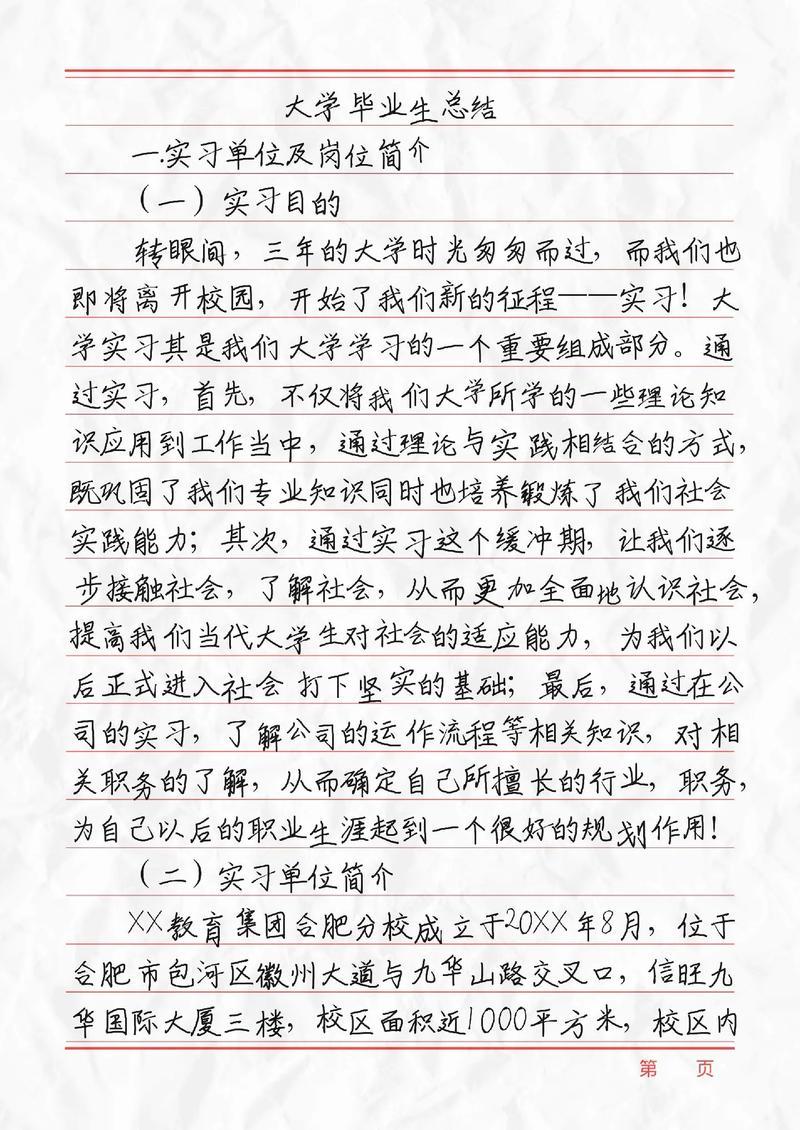 大学毕业生总结
一.实习单位及岗位简介
（一）实习目的
转眼间，三年的大学时光匆匆而过，而我们也
即将离开校园，开始了我们新的征程——实习！大
学实习其是我们大学学习的一个重要组成部分。通
过实习，首先，不仅将我们大学所学的一些理论知
识应用到工作当中，通过理论与实践相结合的方式，
既巩固了我们专业知识同时也培养锻炼了我们社会
实践能力；其次，通过实习这个缓冲期，让我们逐
步接触社会，了解社会，从而更加全面地认识社会，
提高我们当代大学生对社会的适应能力，为我们以
后正式进入社会打下坚实的基础；最后，通过在公
司的实习，了解公司的运作流程等相关知识，对相
关职务的了解，从而确定自己所擅长的行业，职务，
为自己以后的职业生涯起到一个很好的规划作用！
（二）实习单位简介
XX教育集团合肥分校成立于20XX年8月，位于
合肥市包河区徽州大道与九华山路交叉口，信旺九
华国际大厦三楼，校区面积近1000平方米，校区内
第 页